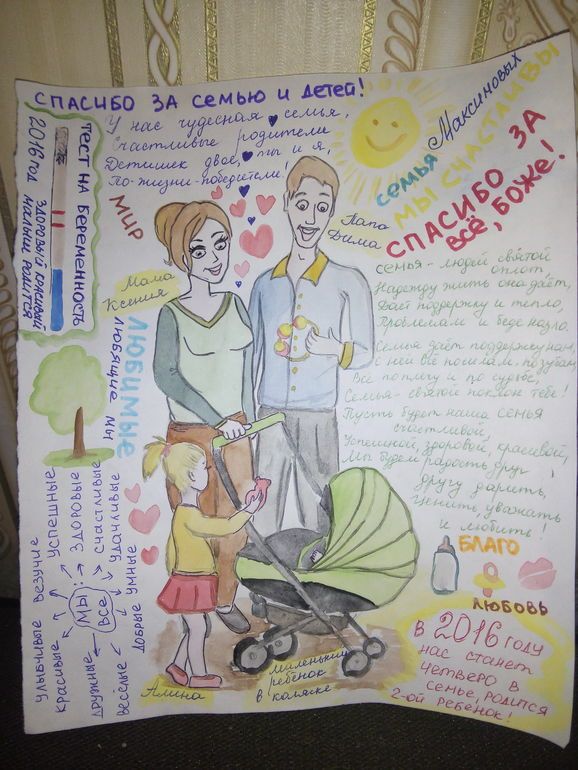 СПАСИБО ЗА семью и детей!
У нас чудесная семья,
Счастливые родители
Детишек двое, ты и я,
По-жизни-победители!
семья Максимовых
МЫ СЧАСТЛИВЫ
СПАСИБО ЗА
ВСЁ, БОЖЕ!
ТЕСТ НА БЕРЕМЕННОСТЬ
2016 ГОД ЗДОРОВЫЙ КРАСИВЫЙ
МАЛЫШ РОДИТСЯ
МИР
Папа
Дима
Мама
Ксения
ЛЮБИМЫЕ
ЛЮБЯЩИЕ МЫ
семья - людей святой
оплот
Надежду жить она даёт,
Даёт поддержку и тепло,
Проблемам и беде назло.
Семья даёт поддержку нам,
С ней всё посилам. по зубам,
Всё по плечу и по судьбе,
Семья - святой поклон тебе!
Пусть будет наша семья
счастливой,
Успешной, здоровой, красивой,
Мы будем радость друг
другу дарить,
Ценить, уважать
и любить!
УЛЫБЧИВЫЕ ВЕЗУЧИЕ
КРАСИВЫЕ УСПЕШНЫЕ
ЗДОРОВЫЕ
СЧАСТЛИВЫЕ
МЫ:
ВСЕ
ДРУЖНЫЕ УДАЧЛИВЫЕ
ВЕСЁЛЫЕ
ДОБРЫЕ УМНЫЕ
БЛАГО
ЛЮБОВЬ
Алина
маленький
ребёнок
в коляске
В 2016 году
нас станет
четверо в
семье, родится
2-ой ребенок!